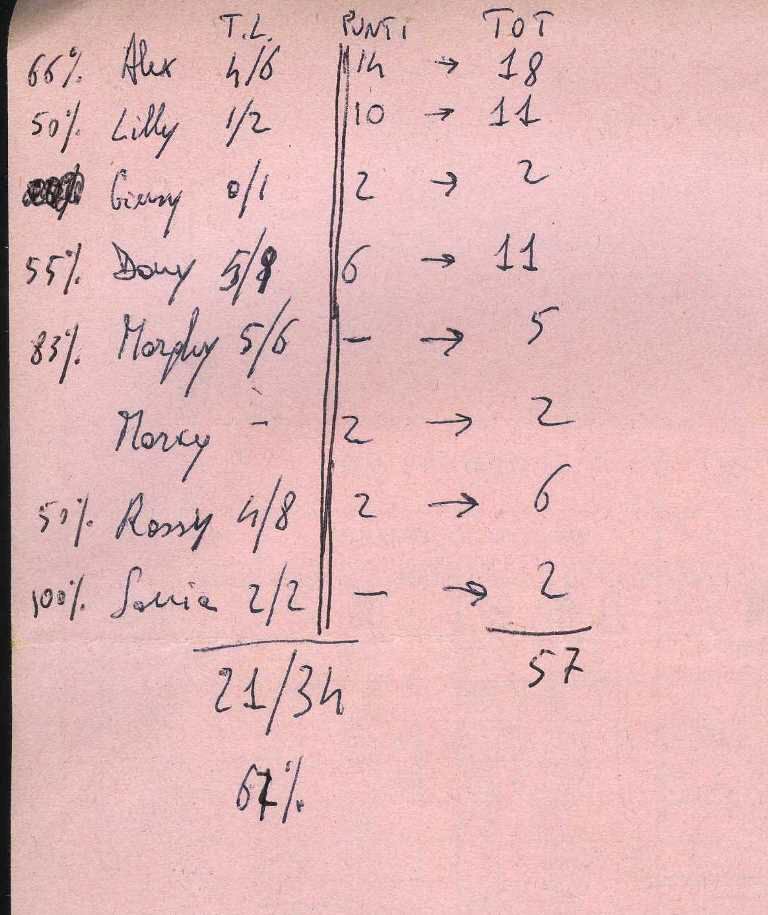 T.L. PUNTI TOT
66% Alex 4/6 14 → 18
50% Lilly 1/2 10 → 11
Giusy 0/1 2 → 2
55% Dony 5/9 6 → 11
83% Morphy 5/6 - → 5
Marcy - 2 → 2
50% Rossy 4/8 2 → 6
100% Sonia 2/2 - → 2
21/34 57
61%